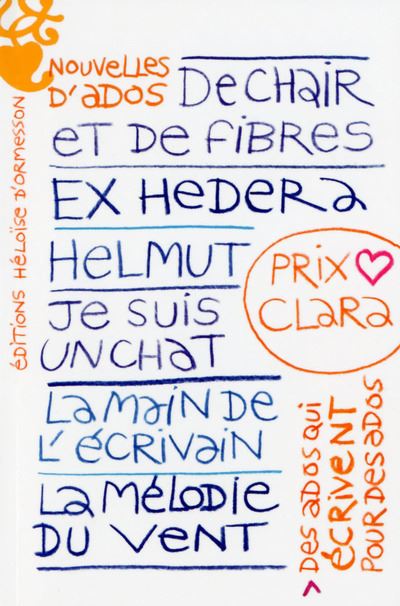 NOUVELLES
D'ADOS
DE CHAIR
ET DE FIBRES
EX HEDERA
HELMUT
JE SUIS
UN CHAT
LA MAIN DE
L'ÉCRIVAIN
LA MÉLODIE
DU VENT
PRIX
CLARA
> DES ADOS QUI
ÉCRIVENT
POUR DES ADOS
ÉDITIONS HÉLOÏSE D'ORMESSON